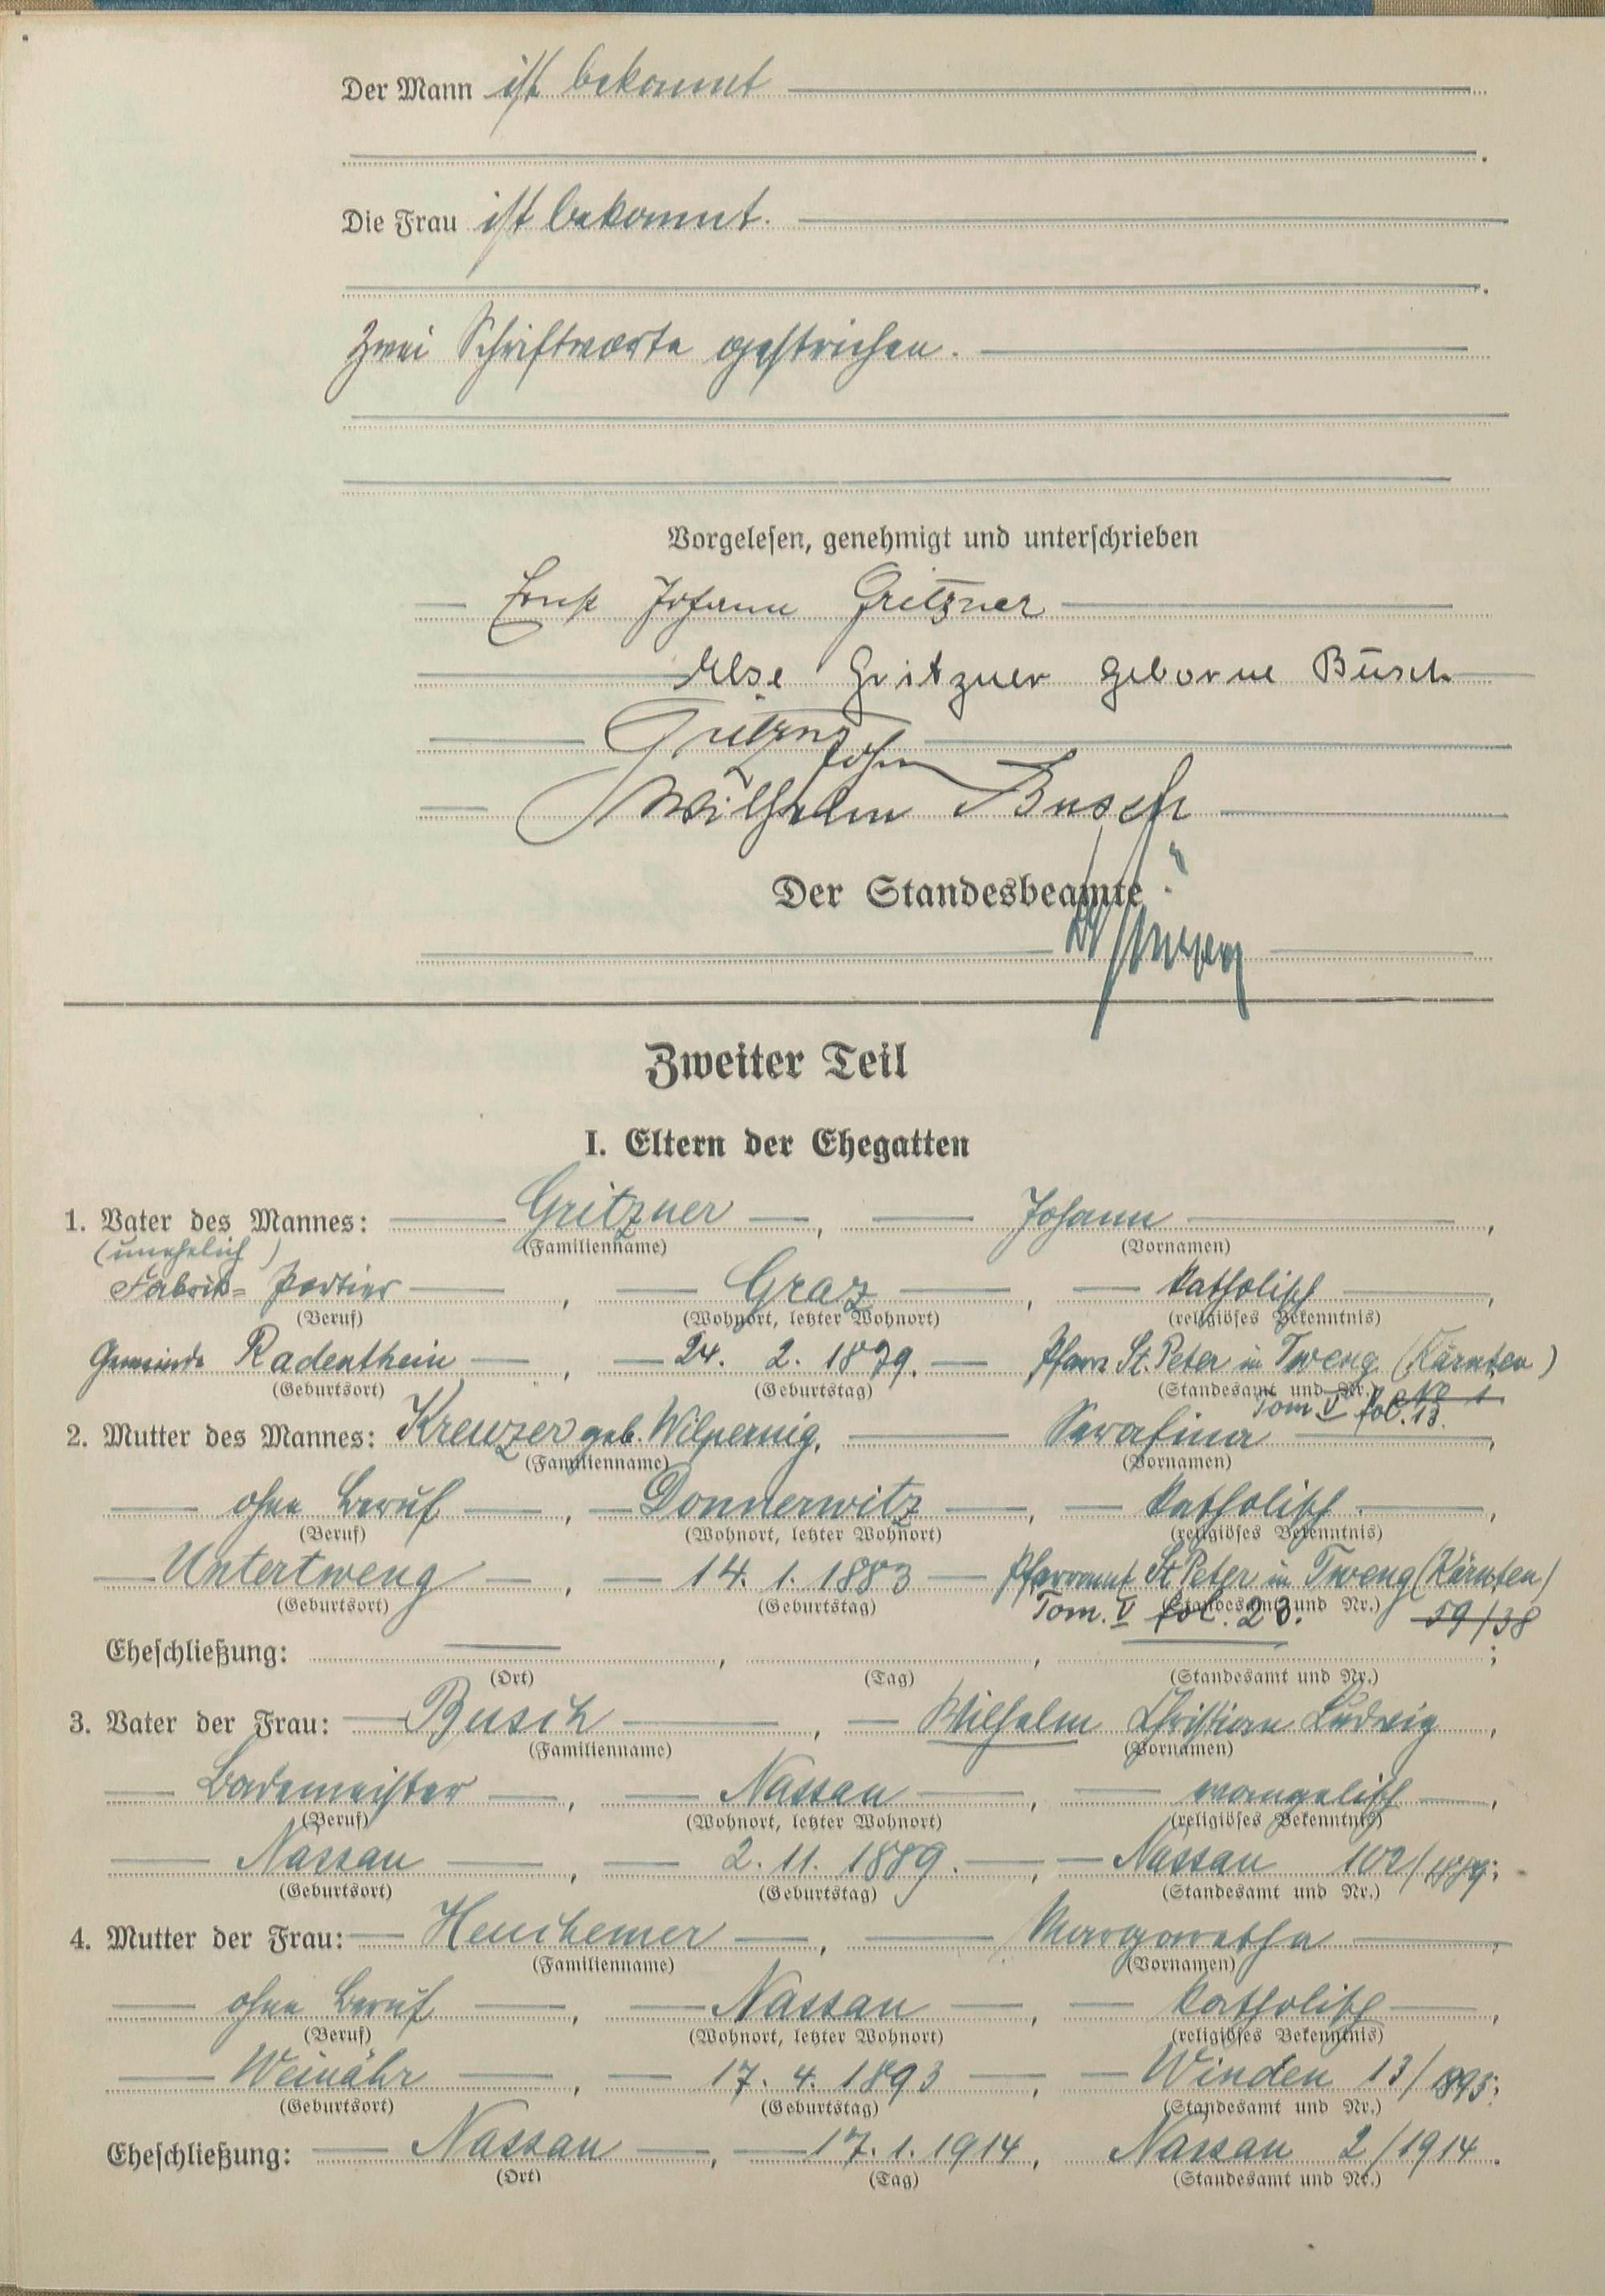 Der Mann ist bekannt
Die Frau ist bekannt.
Zwei Schriftworte gestrichen.
Vorgelesen, genehmigt und unterschrieben
Ernst Johann Gritzner
Else Gritzner geborne Busch
Gritzner
Johann
Wilhelm Busch
Der Standesbeamte
Zweiter Teil
I. Eltern der Ehegatten
1. Vater des Mannes: Gritzner, Johann,
(unehelich) (Familienname) (Vornamen)
Fabrik- Portier, Graz, katholisch,
(Beruf) (Wohnort, letzter Wohnort) (religiöses Bekenntnis)
Gemeinde Radenthein, 24. 2. 1879. Pfarre St. Peter in Tweng (Kärnten)
(Geburtsort) (Geburtstag) (Standesamt und Nr.) No 1
Tom V fol. 13.
2. Mutter des Mannes: Kreuzer geb. Wilpernig, Serafina,
(Familienname) (Vornamen)
ohne Beruf, Donnerwitz, katholisch.,
(Beruf) (Wohnort, letzter Wohnort) (religiöses Bekenntnis)
Untertweng, 14. 1. 1883 Pfarramt St. Peter in Tweng (Kärnten)
(Geburtsort) (Geburtstag) (Standesamt und Nr.)
Tom. V fol. 23. 59/38
Eheschließung: , , ;
(Ort) (Tag) (Standesamt und Nr.)
3. Vater der Frau: Busch, Wilhelm Christian Ludwig,
(Familienname) (Vornamen)
Bademeister, Nassau, evangelisch,
(Beruf) (Wohnort, letzter Wohnort) (religiöses Bekenntnis)
Nassau, 2. 11. 1889., Nassau 102/1889;
(Geburtsort) (Geburtstag) (Standesamt und Nr.)
4. Mutter der Frau: Heuchemer, Margaretha,
(Familienname) (Vornamen)
ohne Beruf, Nassau, katholisch,
(Beruf) (Wohnort, letzter Wohnort) (religiöses Bekenntnis)
Weinähr, 17. 4. 1893, Winden 13/1893;
(Geburtsort) (Geburtstag) (Standesamt und Nr.)
Eheschließung: Nassau, 17. 1. 1914, Nassau 2/1914.
(Ort) (Tag) (Standesamt und Nr.)